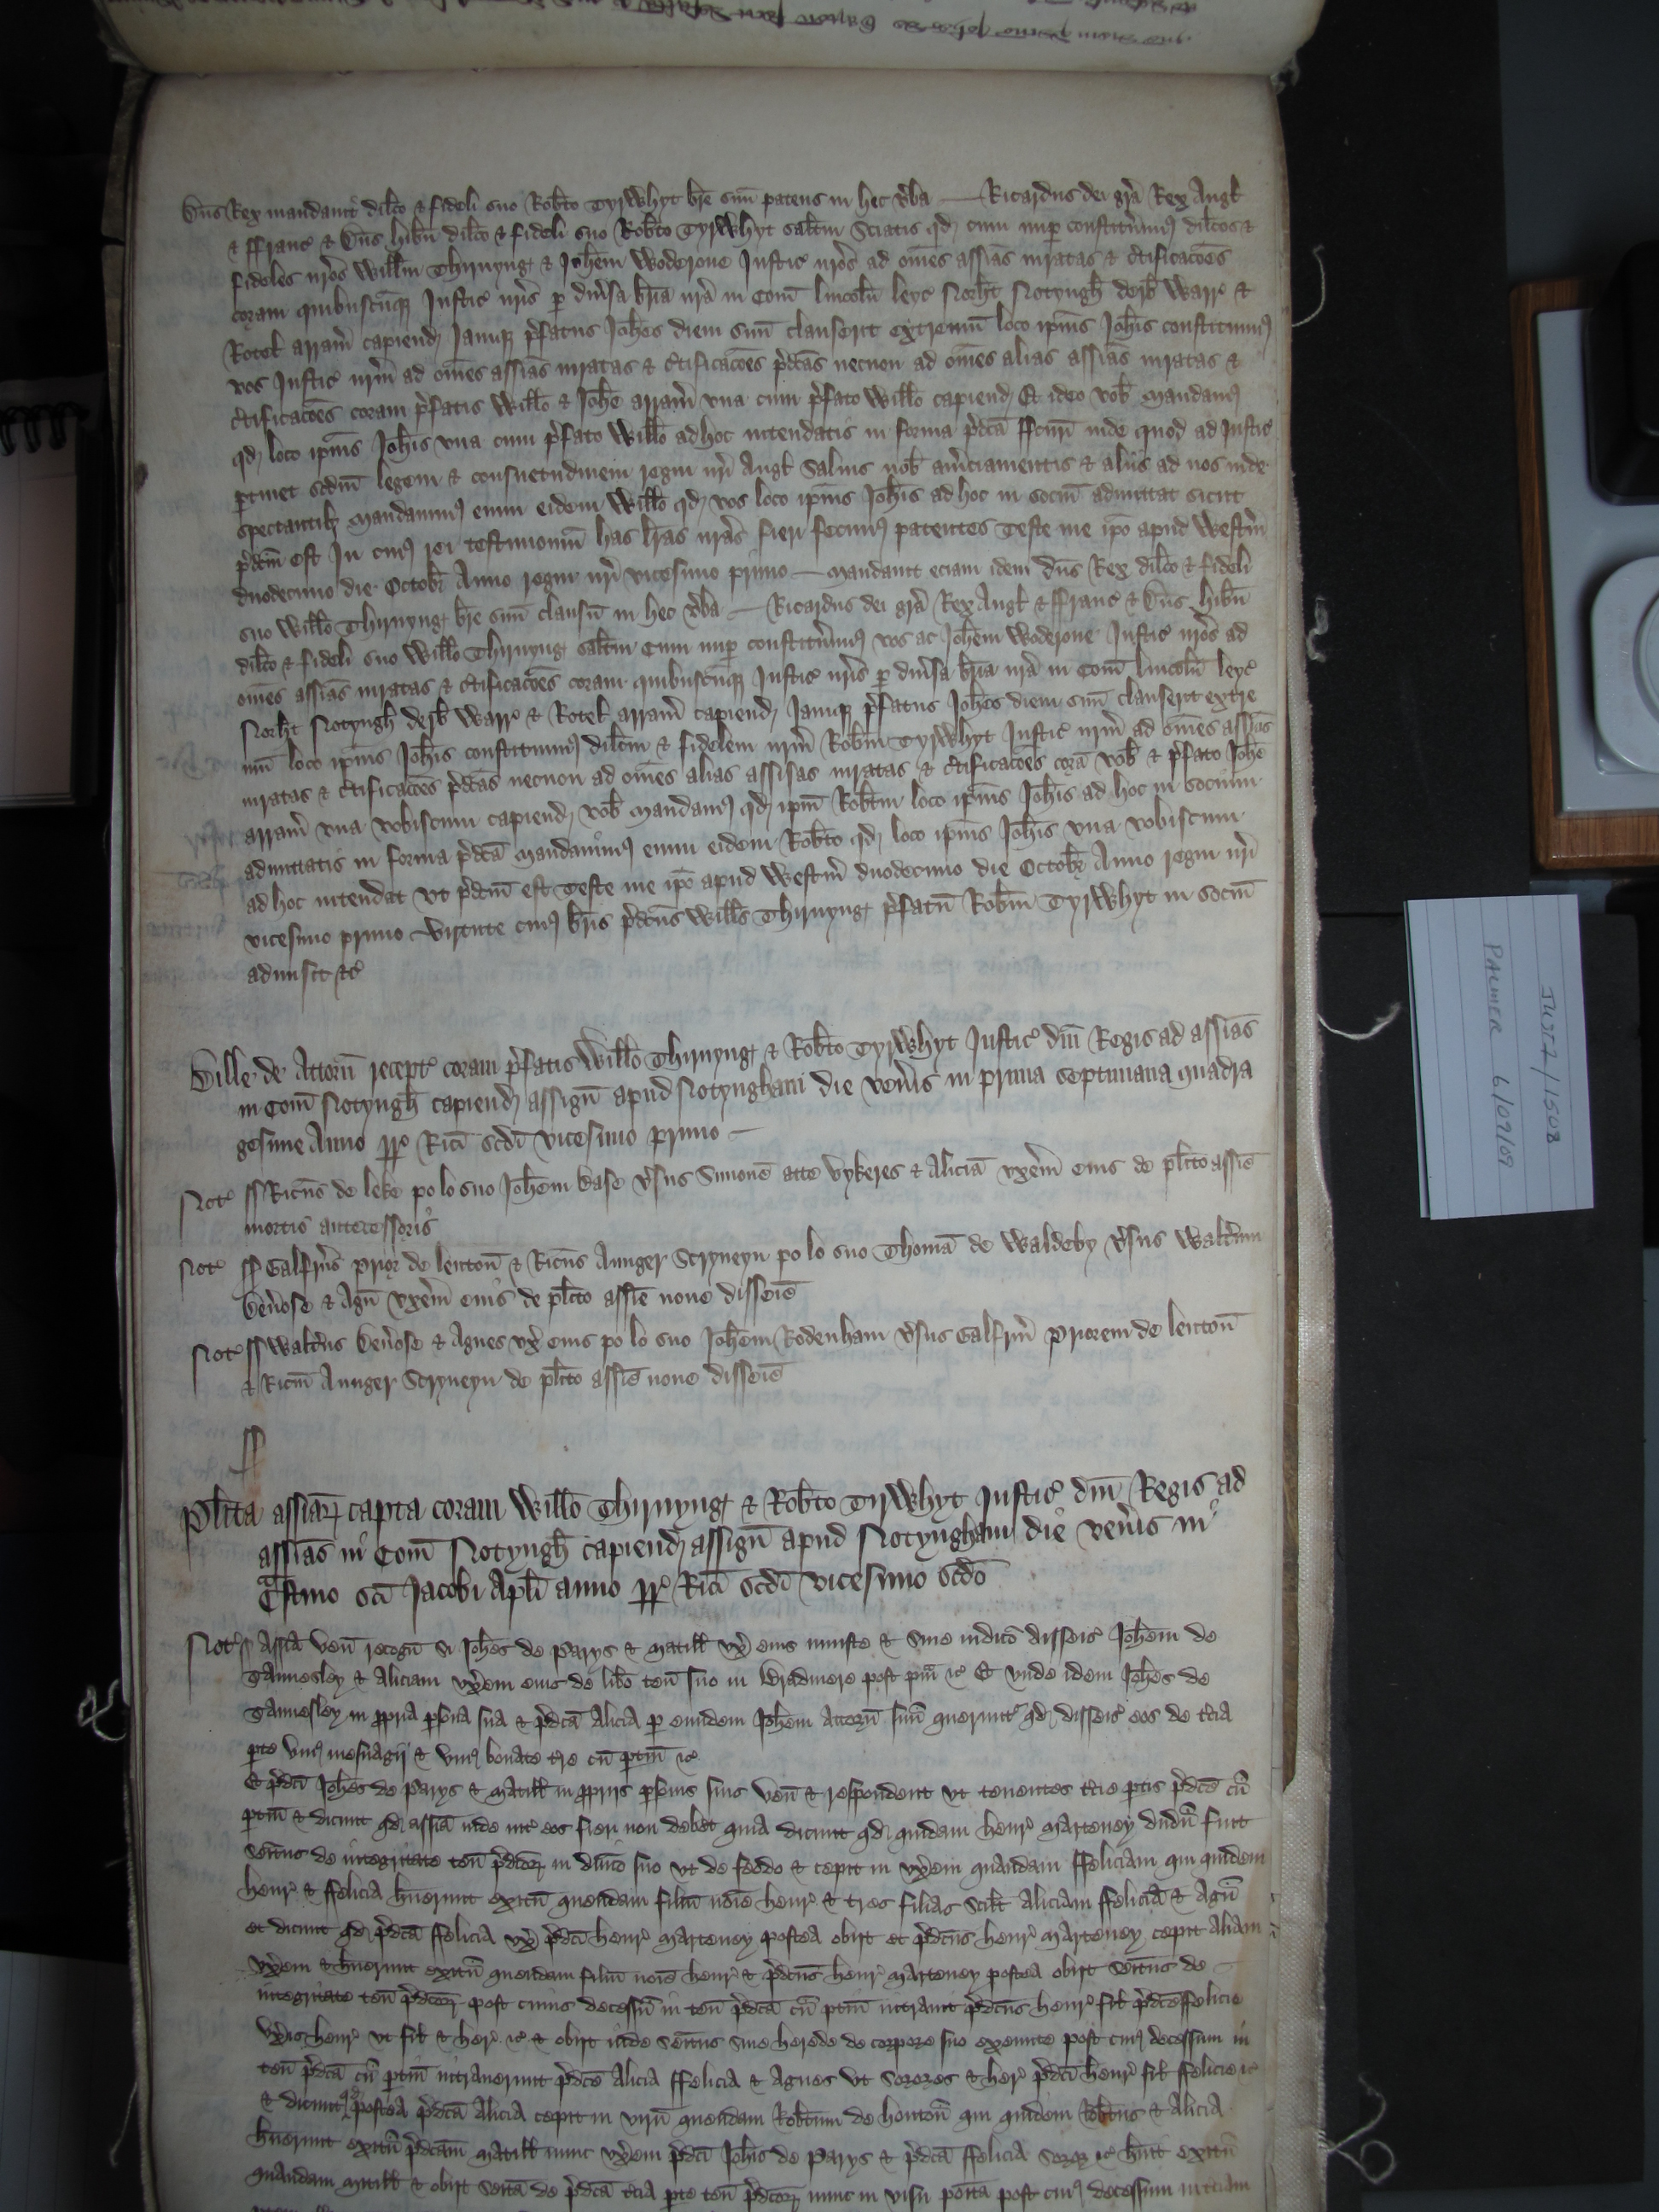 Dns Rex mandavit dilco & fideli suo Robto Tyrwhyt bre suu patens in hec vba — Ricardus dei gra Rex Angl
& ffranc & Dns hibn dilco & fideli suo Robto Tyrwhyt saltm Sciatis qd cum nup constituim9 dilcos &
fideles nros Willm Thirnyng & Johem Woderoue Justic nros ad omes assias iuratas & ctificacoes
coram quibuscuq Justic nris p diusa bria nra in Com Lincoln Leyc Norht Notyngh Derb Warr &
Rotel arram capiend Jamq pfatus Johes diem suu clauserit extremu loco ipius Johis constituim9
vos Justic nrm ad omes assias iuratas & ctificacoes pdcas necnon ad omes alias assias iuratas &
ctificacoes coram pfatis Willo & Johe arram vna cum pfato Willo capiend Et ideo vob mandam9
qd loco ipius Johis vna cum pfato Willo ad hoc intendatis in forma pdca ffcuri inde quod ad Justic
ptinet scdm legem & consuetudinem regni nri Angl Saluis nob amciamentis & aliis ad nos inde
spectantib Mandauim9 enim eidem Willo qd vos loco ipius Johis ad hoc in sociu admittat sicut
pdcm est In cui9 rei testimoniu has lras nras fieri fecim9 patentes Teste me ipo apud Westm
duodecimo die Octobr Anno regni nri vicesimo primo — Mandauit eciam idem dns Rex dilco & fideli
suo Willo Thirnyng bre suu clausu in hec vba — Ricardus dei gra Rex Angl & ffranc & Dns hibn
dilco & fideli suo Willo Thirnyng saltm Cum nup constituim9 vos ac Johem Woderoue Justic nros ad
omes assias iuratas & ctificacoes coram quibuscuq Justic nris p diusa bria nra in Com Lincoln Leyc
Norht Notyngh Derb Warr & Rotel arram capiend Jamq pfatus Johes diem suu clauserit extre
mu loco ipius Johis constituim9 dilcm & fidelem nrm Robtm Tyrwhyt Justic nrm ad omes assias
iuratas & ctificacoes pdcas necnon ad omes alias assisas iuratas & ctificacoes cora vob & pfato Johe
arram vna vobiscum capiend vob mandam9 qd ipm Robtm loco ipius Johis ad hoc in socium
admittatis in forma pdca Mandauim9 enim eidem Robto qd loco ipius Johis vna vobiscum
ad hoc intendat vt pdcm est Teste me ipo apud Westm duodecimo die Octobr Anno regni nri
vicesimo primo Virtute cui9 bris pdcus Wills Thirnyng pfatu Robtm Tyrwhyt in sociu
admisit &c
Bille de Attorn recept coram pfatis Willo Thirnyng & Robto Tyrwhyt Justic dni Regis ad assias
in Com Notyngh capiend assign apud Notyngham die ven'is in prima septimana quadra
gesime Anno rr Rici scdi vicesimo primo —
Not ss Ricus de Leke po lo suo Johem Dase vsus Simone atte Vykeres & Alicia vxem eius de plito assie
mortis antecessoris
Not ss Galfrus Prior de Lenton & Ricus Aunger Scryueyn po lo suo Thoma de Waldeby vsus Waltum
Deuose & Agn vxem eius de plito assie noue disseie
Not ss Waltus Deuose & Agnes vx eius po lo suo Johem Rodenham vsus Galfrm Priorem de Lenton
& Ricm Aunger Scryueyn de plito assie noue disseie
Plita assiar capta coram Willo Thirnyng & Robto Tirwhyt Justic dni Regis ad
assias in Com Notyngh capiend assign apud Notyngham die ven'is in
Cstino sci Jacobi Apli anno rr Rici scdi vicesimo scdo
Not ss Assia ven recogn si Johes de Parys & Matill vx eius iniuste & sine iudico disseis Johem de
Annesley & Aliciam vxem eius de libo ten suo in Bradmere post pm &c Et vnde idem Johes de
Annesley in ppria psona sua & pdca Alicia p eundem Johem Attorn suu querunt qd disseis eos de tcia
pte vni9 mesuagij & vni9 bouate tre cu ptin &c
Et pdci Johes de Parys & Matill in pprijs psonis suis ven & respondent vt tenentes tcie ptis pdce cu
ptin & dicunt qd assia inde int eos fieri non debet quia dicunt qd quidam Henr Marteney dudu fuit
seitus de integritate ten pdcor in dnico suo vt de feodo & cepit in vxem quandam ffeliciam qui quidem
Henr & ffelicia huerunt exitu quendam filiu noie Henr & tres filias scilt Aliciam ffelicia & Agn
et dicunt qd pdca ffelicia vx pdci Henr Marteney postea obijt et pdcus Henr Marteney cepit aliam
vxem & huerunt exitu quendam filiu noie Henr & pdcus Henr Marteney postea obijt seitus de
integritate ten pdcor post cuius decessu in ten pdca cu ptin intrauit pdcus Henr fil pdce ffelicie
vxis Henr vt fil & her &c & obijt inde seitus sine herede de corpore suo exeunte post cui9 decessum in
ten pdca cu ptin intrauerunt pdce Alicia ffelicia & Agnes vt sorores & her pdci Henr fil ffelicie &c
& dicunt qd postea pdca Alicia cepit in viru quendam Robtum de Houton qui quidem Robtus & Alicia
huerunt exitu pdcam Matill nunc vxem pdci Johis de Parys & pdca ffelicia soror &c huit exitu
quandam Matill & obijt seita de pdca tcia pte ten pdcor nunc in visu posita post cui9 decessum

Just 1/1508
Palmer 6/07/09